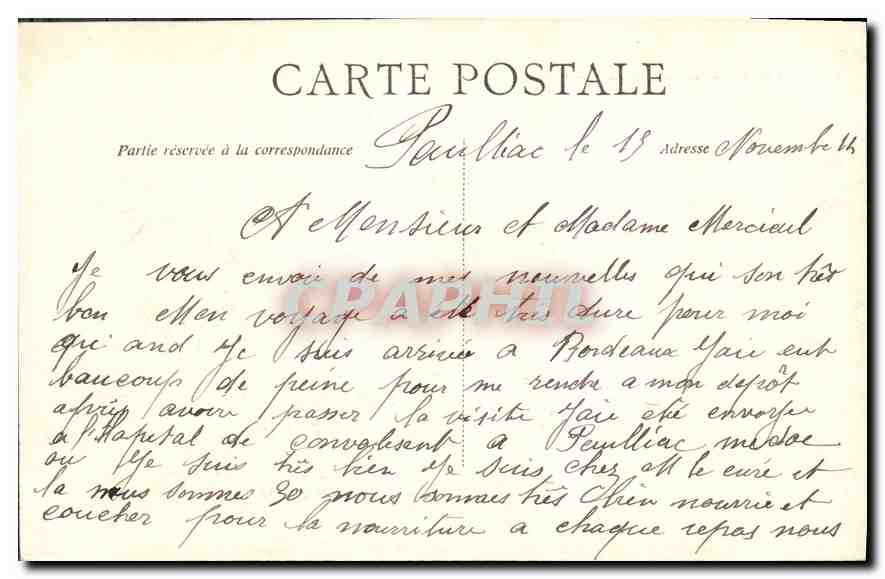 CARTE POSTALE
Partie réservée à la correspondance
Adresse
Paulliac le 15 Novembe 14
A Monsieur et Madame Mercieul
Je vous envoie de mes nouvelles qui son très
bon Mon voyage a été très dure pour moi
qui and Je suis arrivée a Bordeaux Jaie eut
baucoup de peine pour me rendre a mon depôt
après avoir passer la visite Jaie été envoyer
a l'hapital de convalisent a Paulliac medoc
ou Je suis très bien Je suis chez M le curé et
la nous sommes 30 nous sommes très bien nourrie et
coucher pour la nourriture a chaque repas nous
CPAPHIL